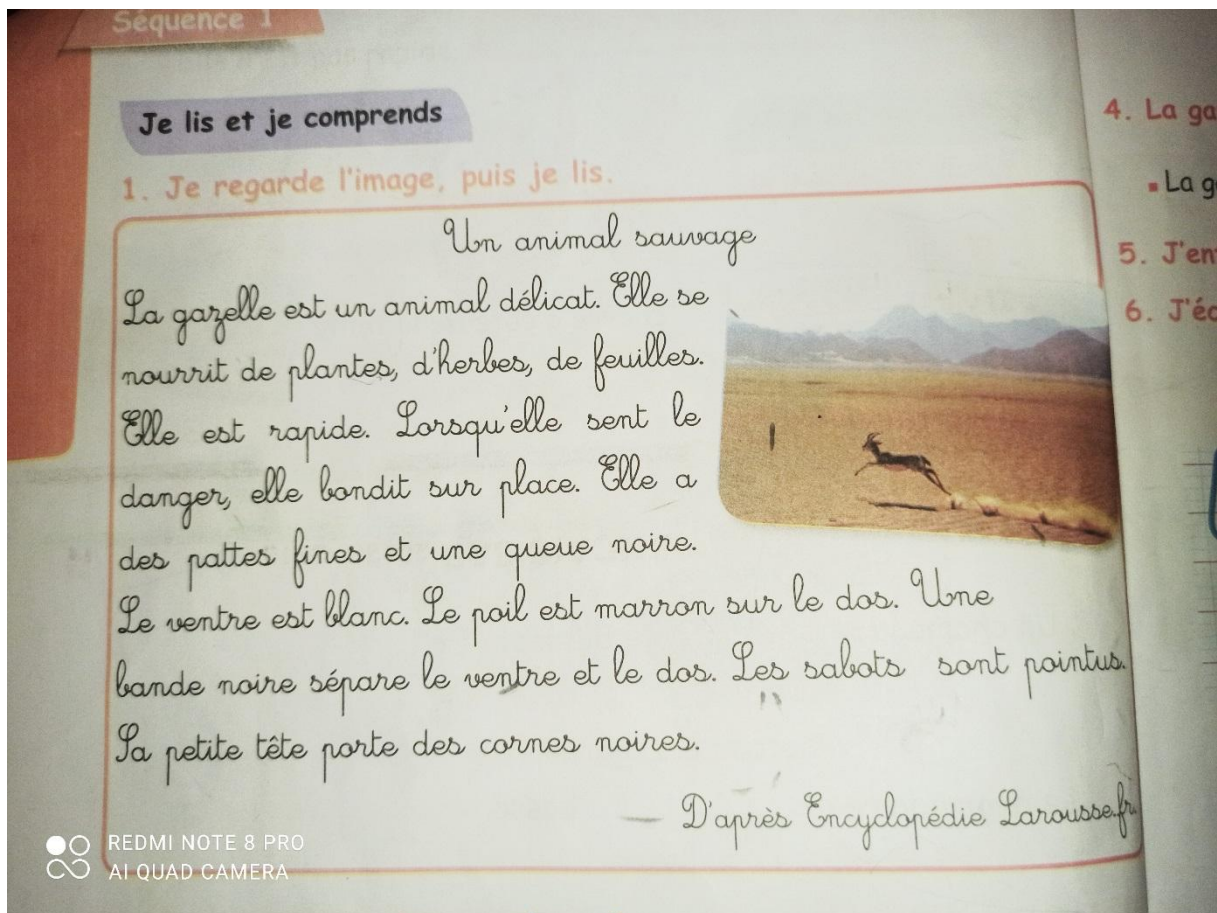 Séquence 1
Je lis et je comprends
1. Je regarde l'image, puis je lis.
Un animal sauvage
La gazelle est un animal délicat. Elle se
nourrit de plantes, d'herbes, de feuilles.
Elle est rapide. Lorsqu'elle sent le
danger, elle bondit sur place. Elle a
des pattes fines et une queue noire.
Le ventre est blanc. Le poil est marron sur le dos. Une
bande noire sépare le ventre et le dos. Les sabots sont pointus.
Sa petite tête porte des cornes noires.
D'après Encyclopédie Larousse.fr.
4. La ga
La g
5. J'en
6. J'éc
REDMI NOTE 8 PRO
AI QUAD CAMERA